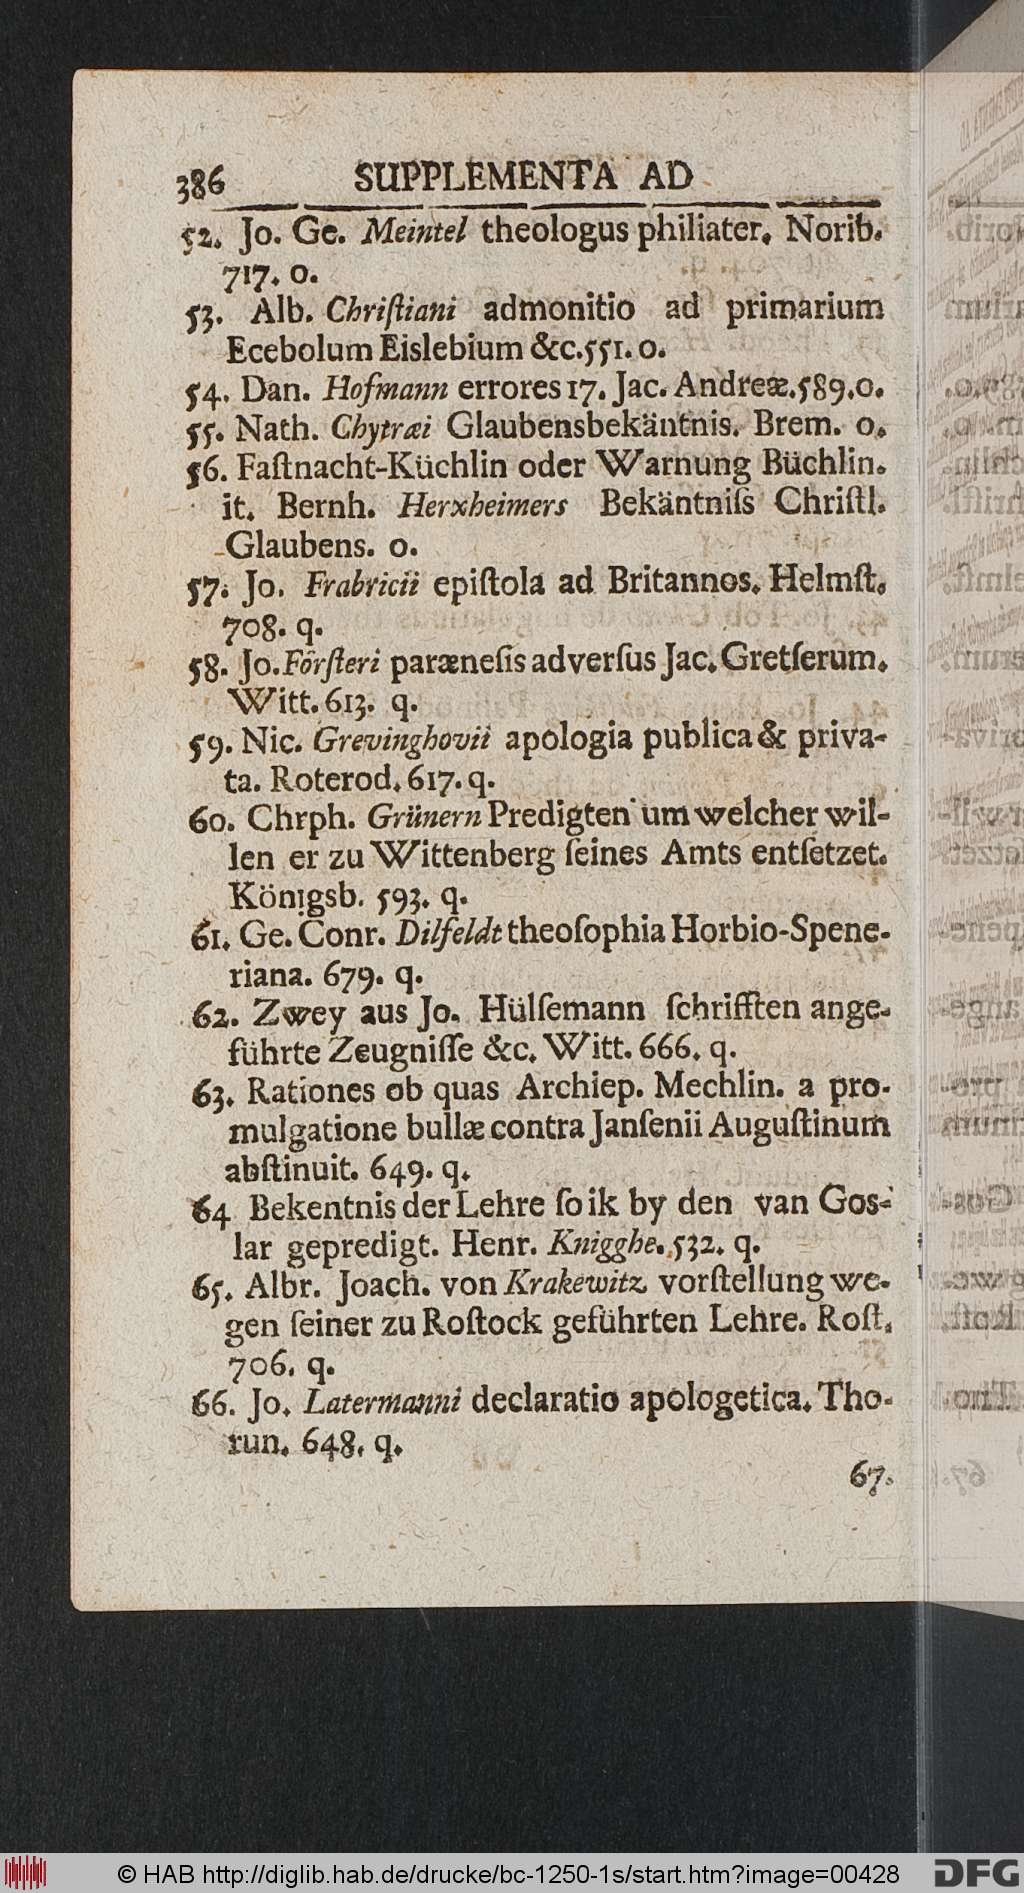 386 SUPPLEMENTA AD
52. Jo. Ge. Meintel theologus philiater. Norib.
717. o.
53. Alb. Chriſtiani admonitio ad primarium
Ecebolum Eislebium &c. 551. o.
54. Dan. Hofmann errores 17. Jac. Andreæ. 589. o.
55. Nath. Chytræi Glaubensbekäntnis. Brem. o.
56. Faſtnacht-Küchlin oder Warnung Büchlin.
it. Bernh. Herxheimers Bekäntniſs Chriſtl.
Glaubens. o.
57. Jo. Frabricii epiſtola ad Britannos. Helmſt.
708. q.
58. Jo. Förſteri paræneſis adverſus Jac. Gretſerum.
Witt. 613. q.
59. Nic. Grevinghovii apologia publica & priva-
ta. Roterod. 617. q.
60. Chrph. Grünern Predigten um welcher wil-
len er zu Wittenberg ſeines Amts entſetzet.
Königsb. 593. q.
61. Ge. Conr. Dilfeldt theoſophia Horbio-Spene-
riana. 679. q.
62. Zwey aus Jo. Hülſemann ſchrifften ange-
führte Zeugniſſe &c. Witt. 666. q.
63. Rationes ob quas Archiep. Mechlin. a pro-
mulgatione bullæ contra Janſenii Auguſtinum
abſtinuit. 649. q.
64 Bekentnis der Lehre ſo ik by den van Gos-
lar gepredigt. Henr. Knigghe. 532. q.
65. Albr. Joach. von Krakewitz vorſtellung we-
gen ſeiner zu Roſtock geführten Lehre. Roſt.
706. q.
66. Jo. Latermanni declaratio apologetica. Tho-
run. 648. q.
67.
© HAB http://diglib.hab.de/drucke/bc-1250-1s/start.htm?image=00428
DFG